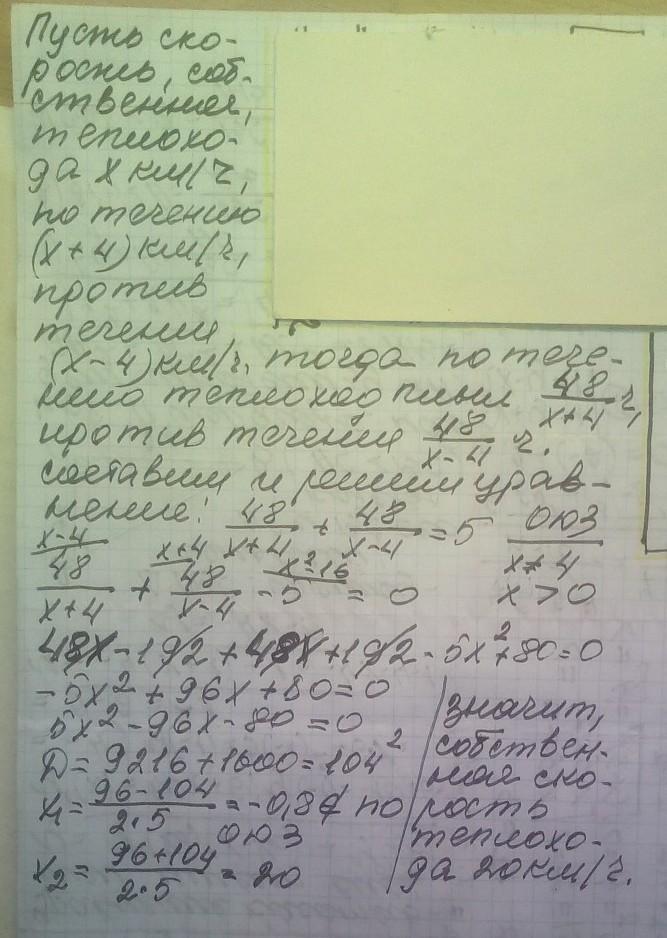 Пусть ско-
рость, соб-
ственная,
теплохо-
да x км/ч,
по течению
(x+4) км/ч,
против
течения
(x-4) км/ч. тогда по тече-
нию теплоход плыл 48/(x+4) ч,
против течения 48/(x-4) ч.
составим и решим урав-
нение: 48/(x+4) + 48/(x-4) = 5 ОЮЗ
x-4 x+4 x²-16 x≠4
48/(x+4) + 48/(x-4) - 5 = 0 x>0
48x-192+48x+192-5x²+80=0
-5x²+96x+80=0
5x²-96x-80=0
D=9216+1600=104²
x₁= (96-104)/(2·5) = -0,8∉ по
ОЮЗ
x₂= (96+104)/(2·5) = 20
значит,
собствен-
ная ско-
рость
теплохо-
да 20 км/ч.